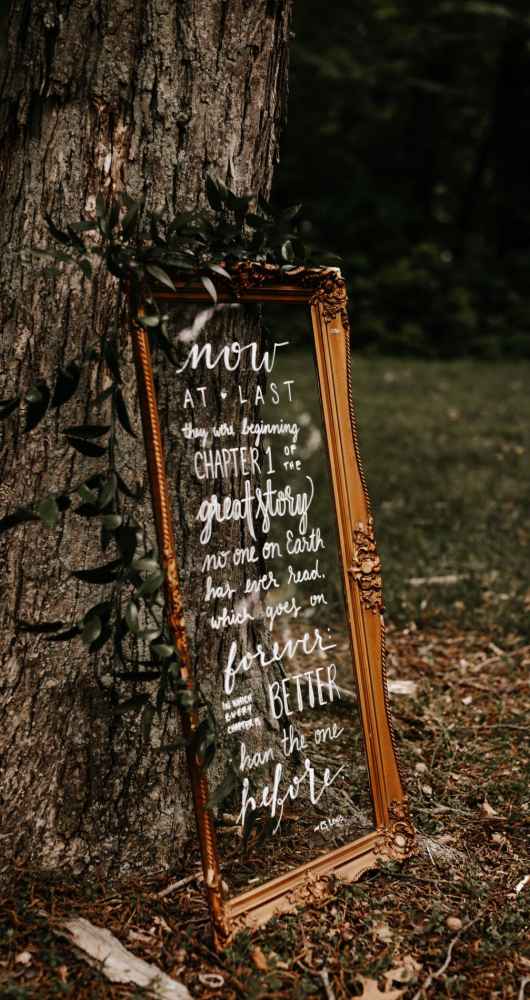 now
AT • LAST
they were beginning
CHAPTER 1 OF THE
great story
no one on Earth
has ever read.
which goes on
forever:
IN WHICH EVERY CHAPTER IS BETTER
than the one
before